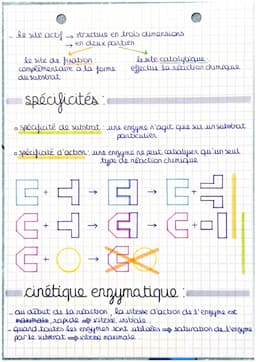 - le site actif → structure en trois dimensions
→ en deux parties
le site de fixation :
complémentaire à la forme
du substrat
le site catalytique :
effectue la réaction chimique
spécificités :
spécificité de substrat : une enzyme n'agit que sur un substrat
particulier
spécificité d'action : une enzyme ne peut catalyser qu'un seul
type de réaction chimique
cinétique enzymatique :
- au début de la réaction, la vitesse d'action de l'enzyme est
maximale, rapide → vitesse initiale
- quand toutes les enzymes sont utilisées → saturation de l'enzyme
par le substrat → vitesse maximale